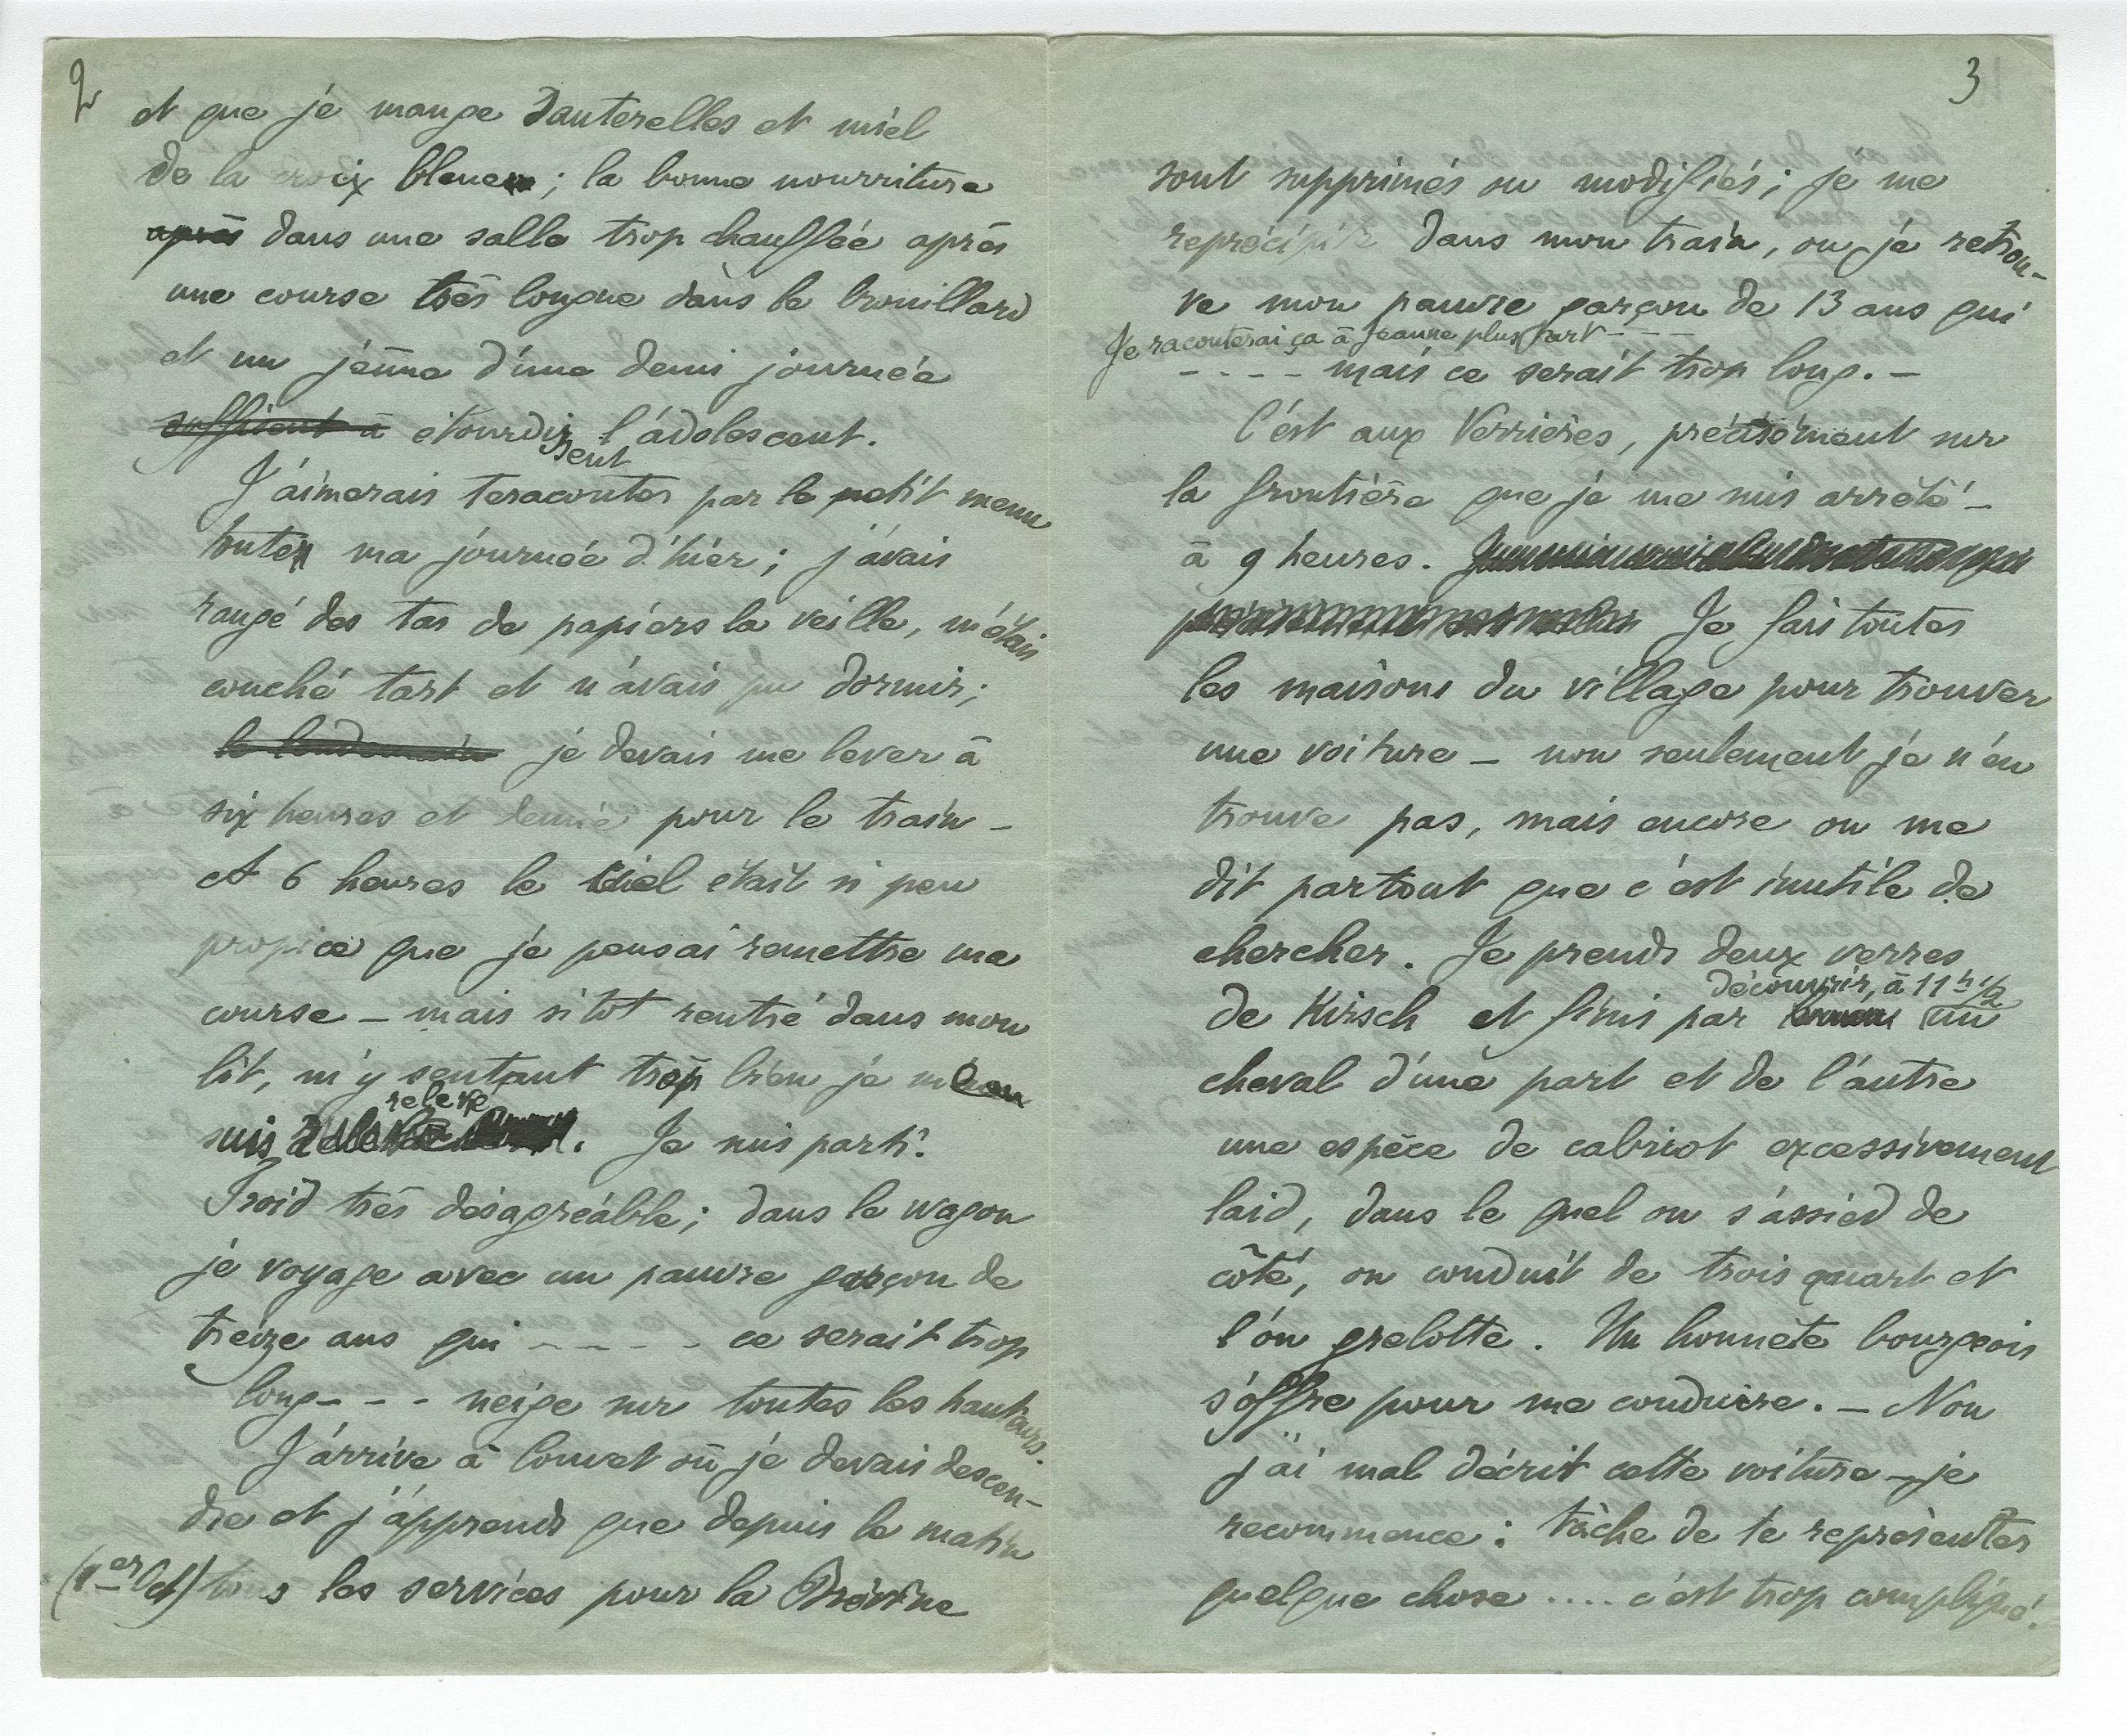 2
et que je mange sauterelles et miel
de la croix bleue ; la bonne nourriture
après dans une salle trop chauffée après
une course très longue dans le brouillard
et un jeûne d'une demi journée
suffisent à étourdissent l'adolescent.
J'aimerais te raconter par le petit menu
toute ma journée d'hier ; j'avais
rangé des tas de papiers la veille, m'étais
couché tart et n'avais pu dormir ;
le lendemain je devais me lever à
six heures et demie pour le train –
A 6 heures le ciel était si peu
propice que je pensai remettre ma
course – mais sitot rentré dans mon
lit, m'y sentant trop bien je m'en
suis relevé. Je suis parti.
Froid très désagréable ; dans le wagon
je voyage avec un pauvre garçon de
treize ans qui – – – – – ce serait trop
long – – – neige sur toutes les hauteurs.
J'arrive à Couvet où je devais descen-
dre et j'apprends que depuis le matin
(1er Oct) tous les services pour la Brévine
3
sont supprimés ou modifiés ; je me
reprécipite dans mon train, ou je retrou-
ve mon pauvre garçon de 13 ans qui
Je raconterai ça à Jeanne plus tart – – –
– – – – mais ce serait trop long. –
C'est aux Verrières, précisément sur
la frontière que je me suis arrêté –
à 9 heures.
Je fais toutes
les maisons du village pour trouver
une voiture – non seulement je n'en
trouve pas, mais encore on me
dit partout que c'est inutile de
chercher. Je prends deux verres
découvrir, à 11 h 1/2
de Kirsch et finis par un
cheval d'une part et de l'autre
une espèce de cabriot excessivement
laid, dans le quel on s'assied de
côté, on conduit de trois quart et
l'on grelotte. Un honnête bourgeois
s'offre pour me conduire. – Non
j'ai mal décrit cette voiture – je
recommence : tâche de te représenter
quelque chose .... c'est trop compliqué.